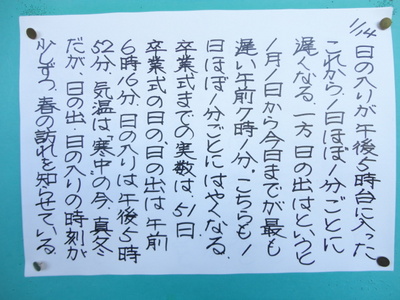 1/14
日の入りが午後5時台に入った
これから1日ほぼ1分ごとに
遅くなる.一方日の出はというと
1月1日から今日までが最も
遅い午前7時1分.こちらも1
日ほぼ1分ごとにはやくなる.
卒業式までの実数は、51日.
卒業式の日の、日の出は午前
6時16分、日の入りは午後5時
52分.気温は"寒中"の今、真冬
だが、日の出・日の入りの時刻が
少しずつ、春の訪れを知らせている.